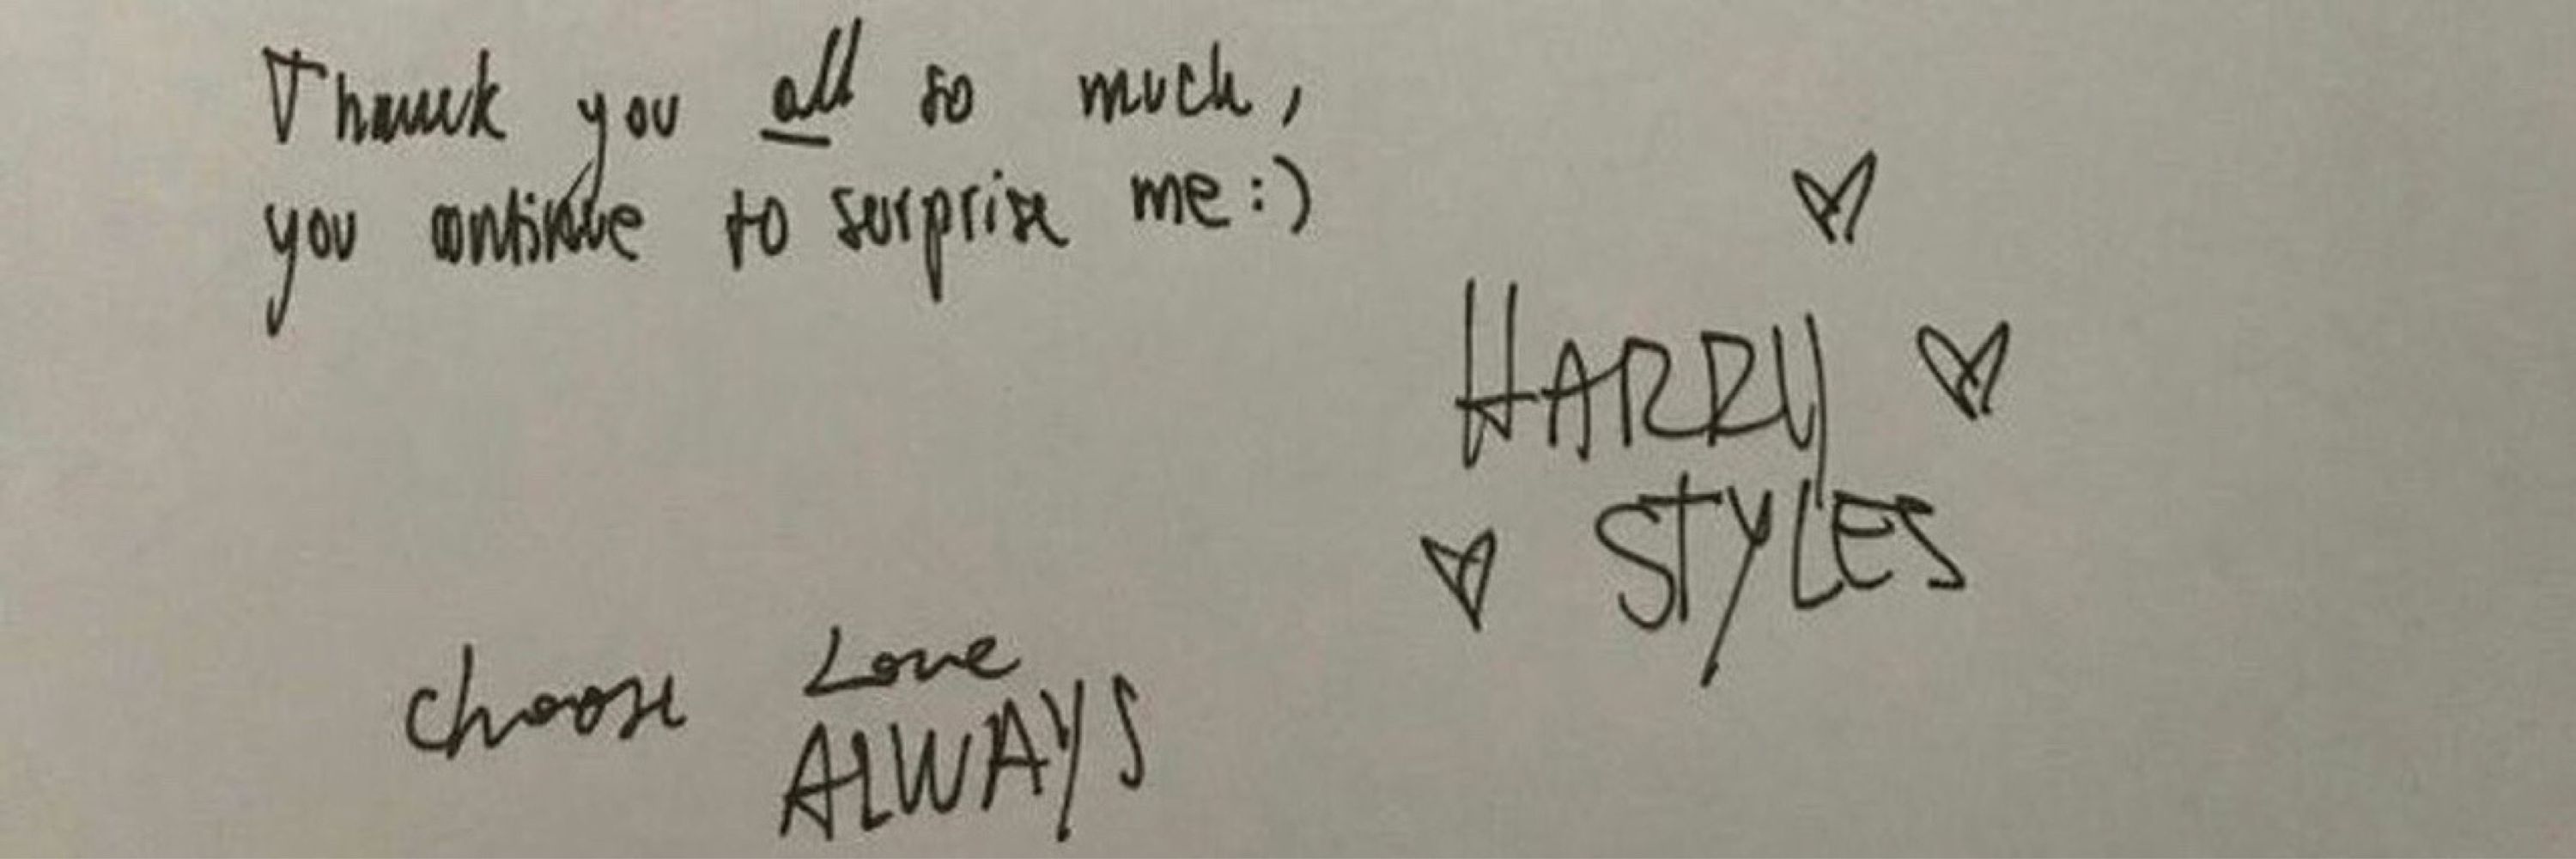 Thank you all so much,
you continue to surprise me:)
HARRY
STYLES
choose Love
ALWAYS